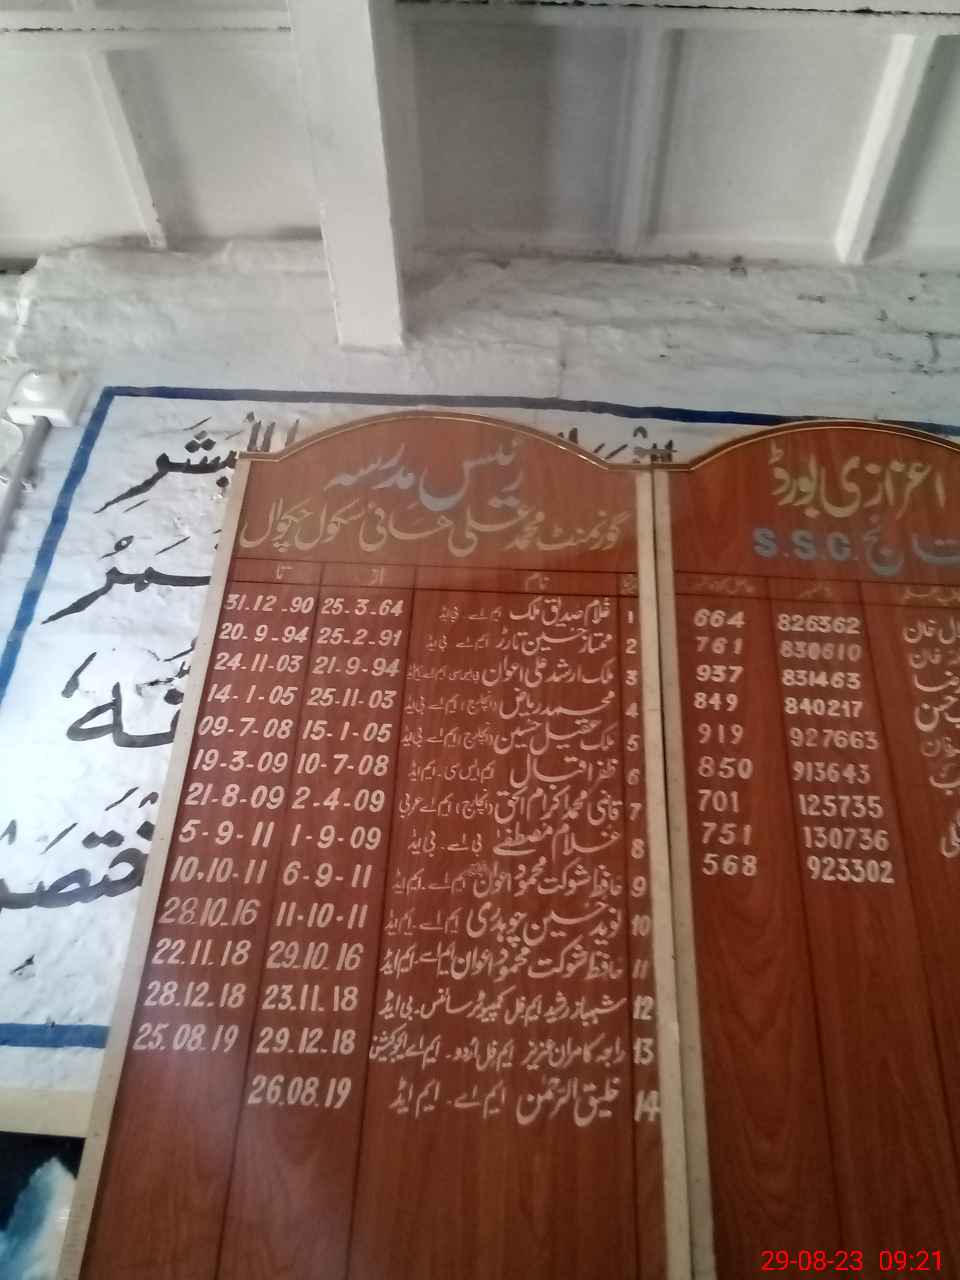 البشر
رئیس مدرسہ
گورنمنٹ محمد علی ہائی سکول چکوال
نام از تا
1 غلام صدیق ملک ایم اے۔ بی ایڈ 25.3.64 31.12.90
2 ممتاز حسین تارڑ ایم اے۔ بی ایڈ 25-2-91 20-9-94
3 ملک ارشد علی اعوان 21-9-94 24.11-03
4 محمد ریاض (انچارج) ایم اے۔ بی ایڈ 25-11-03 14-1-05
5 ملک عقیل حسین (انچارج) ایم اے۔ بی ایڈ 15-1-05 09-7-08
6 ظفر اقبال ایم ایس سی۔ ایم ایڈ 10-7-08 19-3-09
7 قاضی محمد اکرام الحق (انچارج) ایم اے عربی 2-4-09 21-8-09
8 غلام مصطفےٰ بی اے۔ بی ایڈ 1-9-09 5-9-11
9 حافظ شوکت محمود اعوان ایم اے۔ ایم ایڈ 6-9-11 10.10-11
10 نوید حسین چوہدری ایم اے۔ ایم ایڈ 11-10-11 28.10.16
11 حافظ شوکت محمود اعوان ایم اے۔ ایم ایڈ 29.10.16 22.11.18
12 شہباز رشید ایم فل کمپیوٹر سائنس۔ بی ایڈ 23.11.18 28.12.18
13 راجہ کامران عزیز ایم فل اردو۔ ایم اے ایجوکیشن 29.12.18 25.08.19
14 خلیق الرحمٰن ایم اے۔ ایم ایڈ 26.08.19
اعزازی بورڈ
S.S.C.
خان 826362 664
خان 830610 761
831463 937
840217 849
927663 919
913643 850
125735 701
130736 751
923302 568
29-08-23 09:21